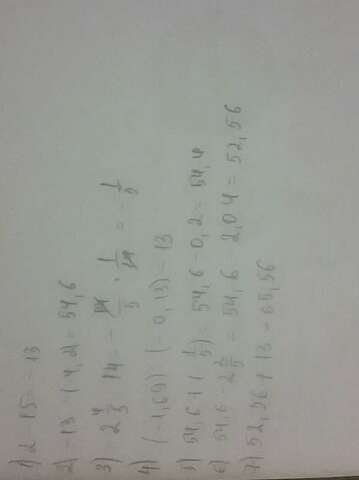 1) 2 - 15 = - 13
2) - 13 · (4,2) = 54,6
3) - 2 4/5 : 14 = - 14/5 · 1/14 = - 1/5
4) (-1,69) : (-0,13) = 13
5) 54,6 + (- 1/5) = 54,6 - 0,2 = 54,4
6) 54,6 - 2 2/5 = 54,6 - 2,04 = 52,56
7) 52,56 + 13 = 65,56